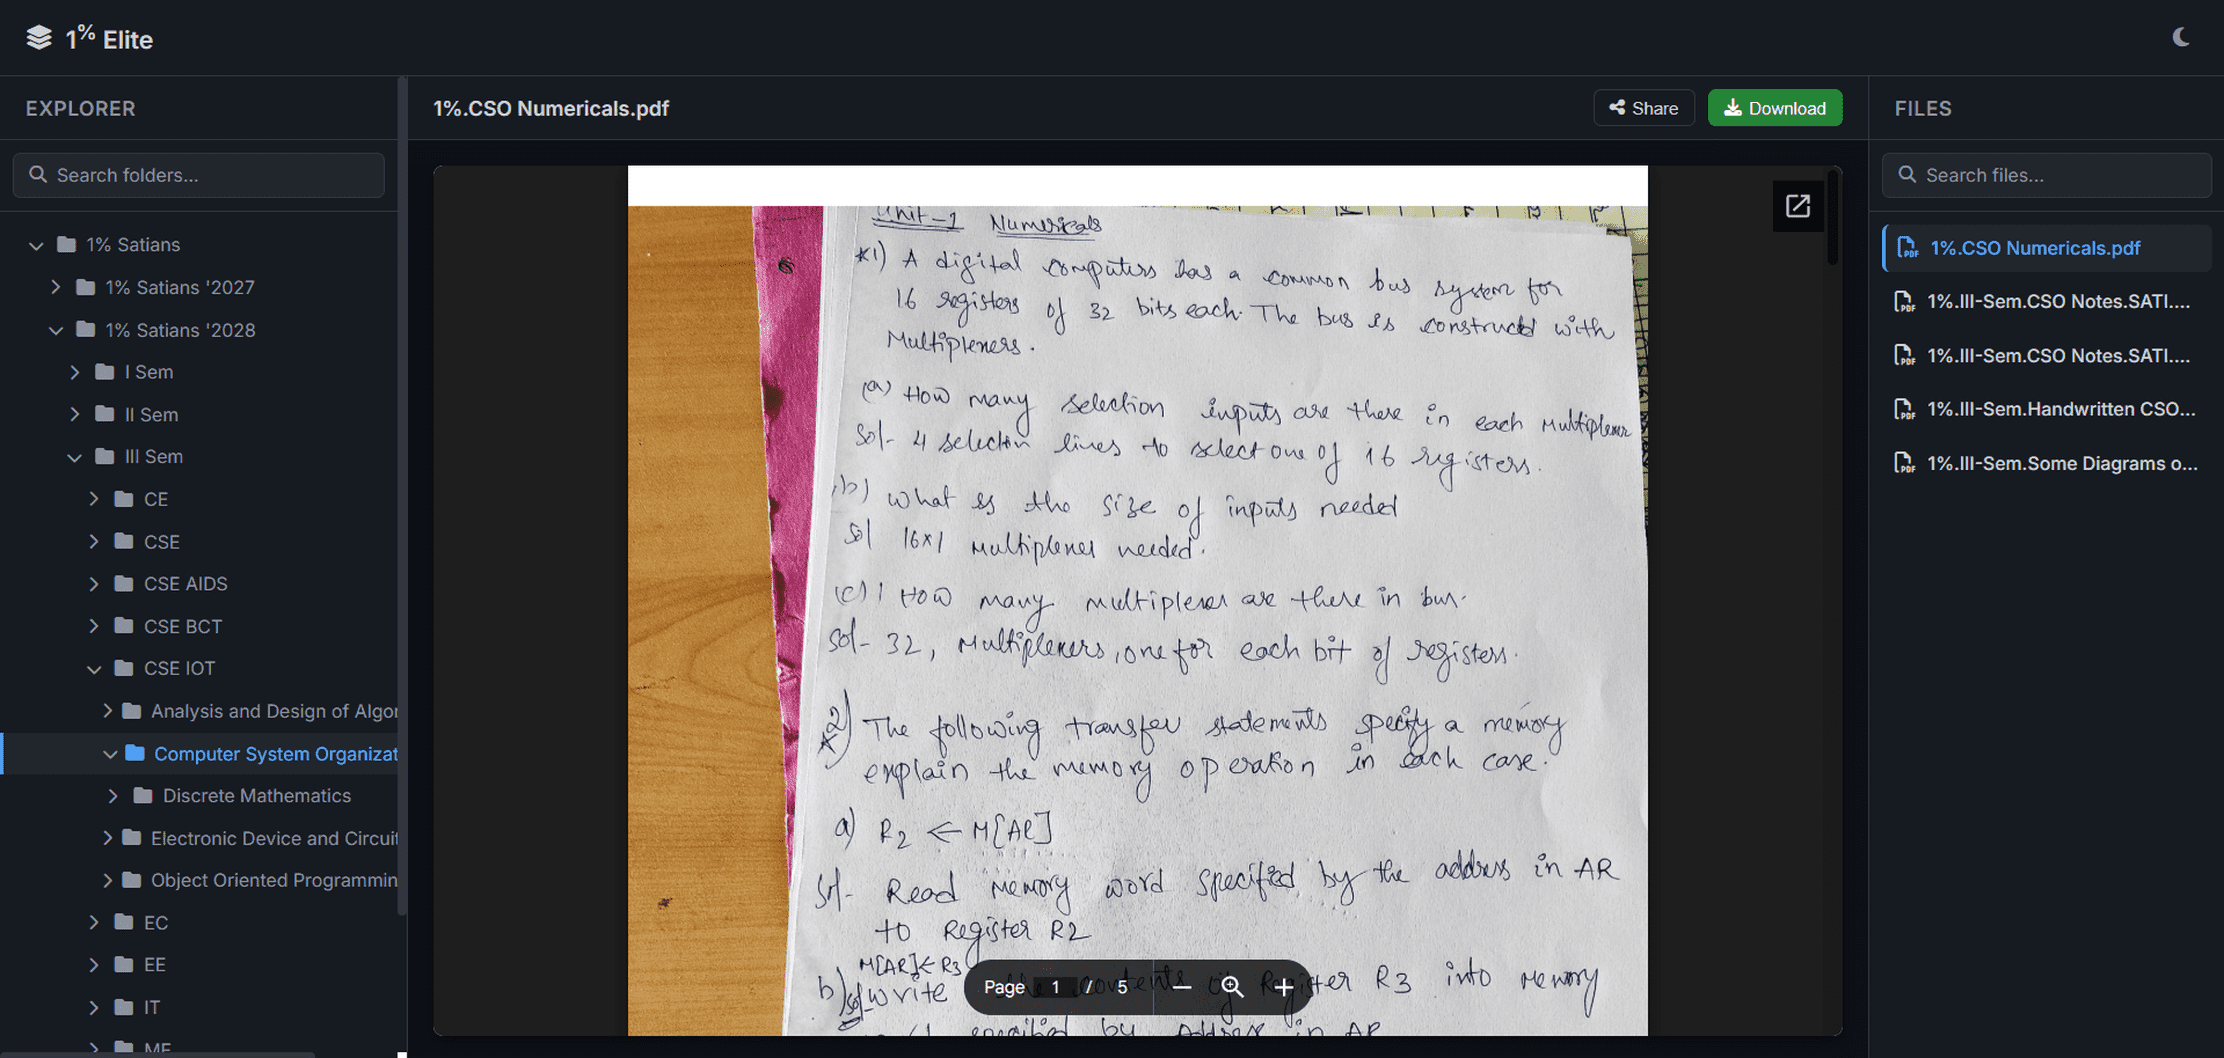 1% Elite
EXPLORER
Search folders...
1% Satians
1% Satians '2027
1% Satians '2028
I Sem
II Sem
III Sem
CE
CSE
CSE AIDS
CSE BCT
CSE IOT
Analysis and Design of Algor
Computer System Organizat
Discrete Mathematics
Electronic Device and Circuit
Object Oriented Programmin
EC
EE
IT
ME
1%.CSO Numericals.pdf
Share
Download
Unit-1 Numericals
*1) A digital computers has a common bus system for
16 registers of 32 bits each. The bus is constructed with
Multiplexers.
(a) How many selection inputs are there in each Multiplexer
Sol- 4 selection lines to select one of 16 registers.
(b) What is the size of inputs needed
Sol 16x1 Multiplexer needed.
(c) How many multiplexer are there in bus.
Sol- 32, Multiplexers, one for each bit of registers.
*2) The following transfer statements specify a memory
explain the memory operation in each case.
a) R2 ← M[AR]
Sol- Read memory word specified by the address in AR
to Register R2
M[AR] ← R3
b) Sol- Write the contents of Register R3 into Memory
specified by Address in AR
Page 1 / 5
FILES
Search files...
1%.CSO Numericals.pdf
1%.III-Sem.CSO Notes.SATI....
1%.III-Sem.CSO Notes.SATI....
1%.III-Sem.Handwritten CSO...
1%.III-Sem.Some Diagrams o...